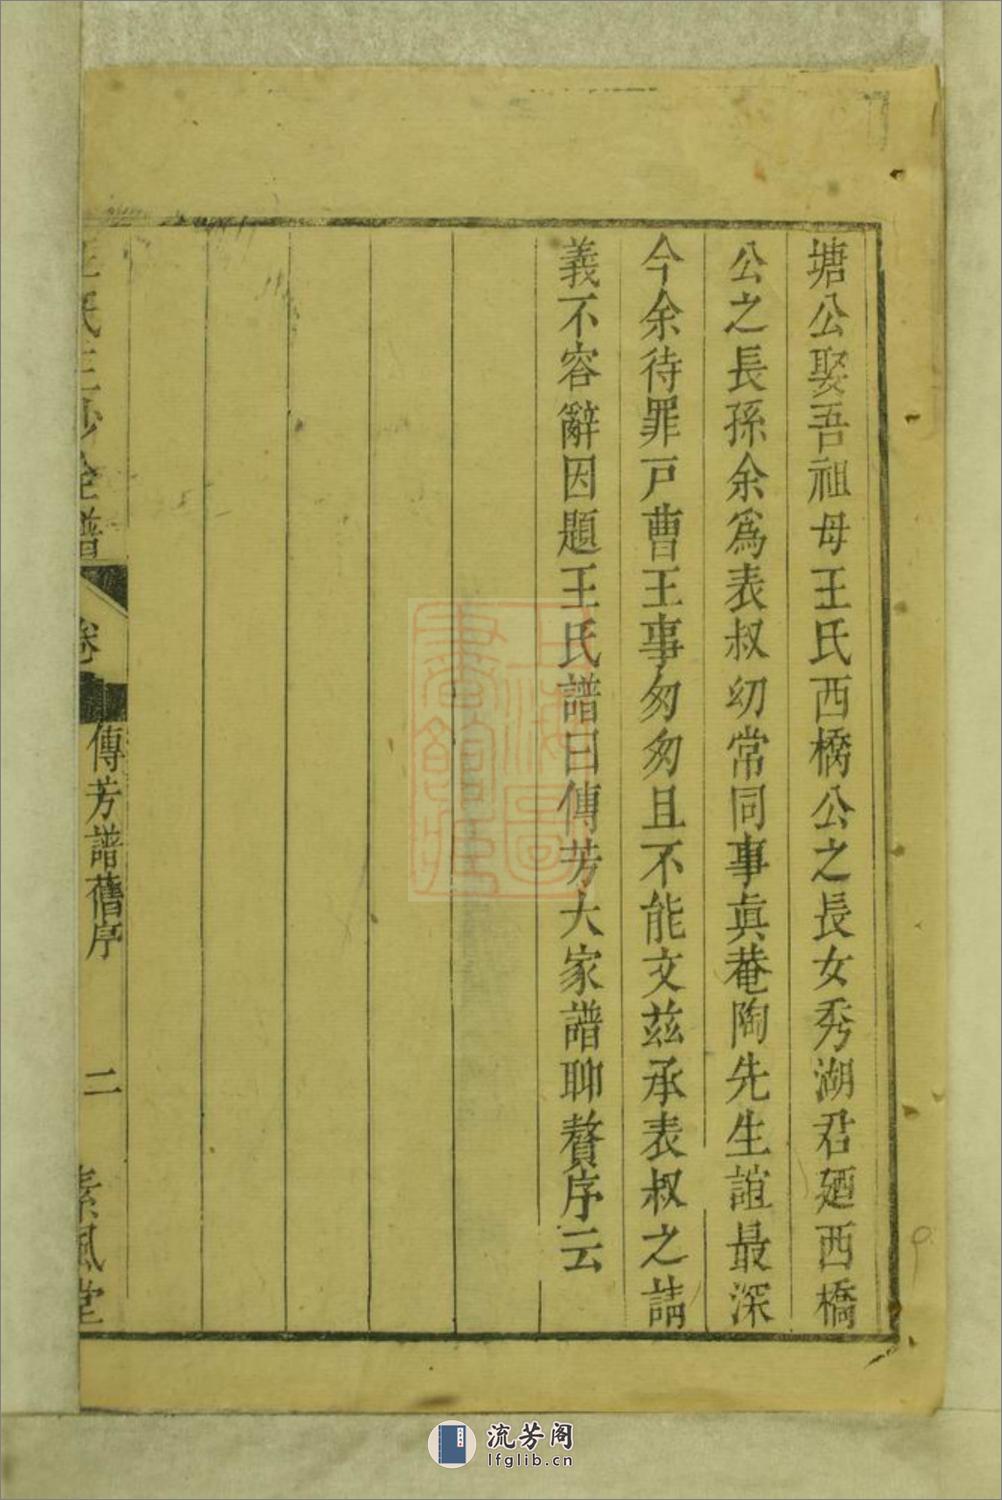 塘公娶吾祖母王氏西橋公之長女秀湖君廼西橋
公之長孫余爲表叔幼常同事眞菴陶先生誼最深
今余待罪戸曹王事匆匆且不能文茲承表叔之請
義不容辭因題王氏譜曰傳芳大家譜聊贅序云
王氏三沙全譜
卷
傳芳譜舊序
二
素風堂
上海圖
書館藏
流芳阁
lfglib.cn